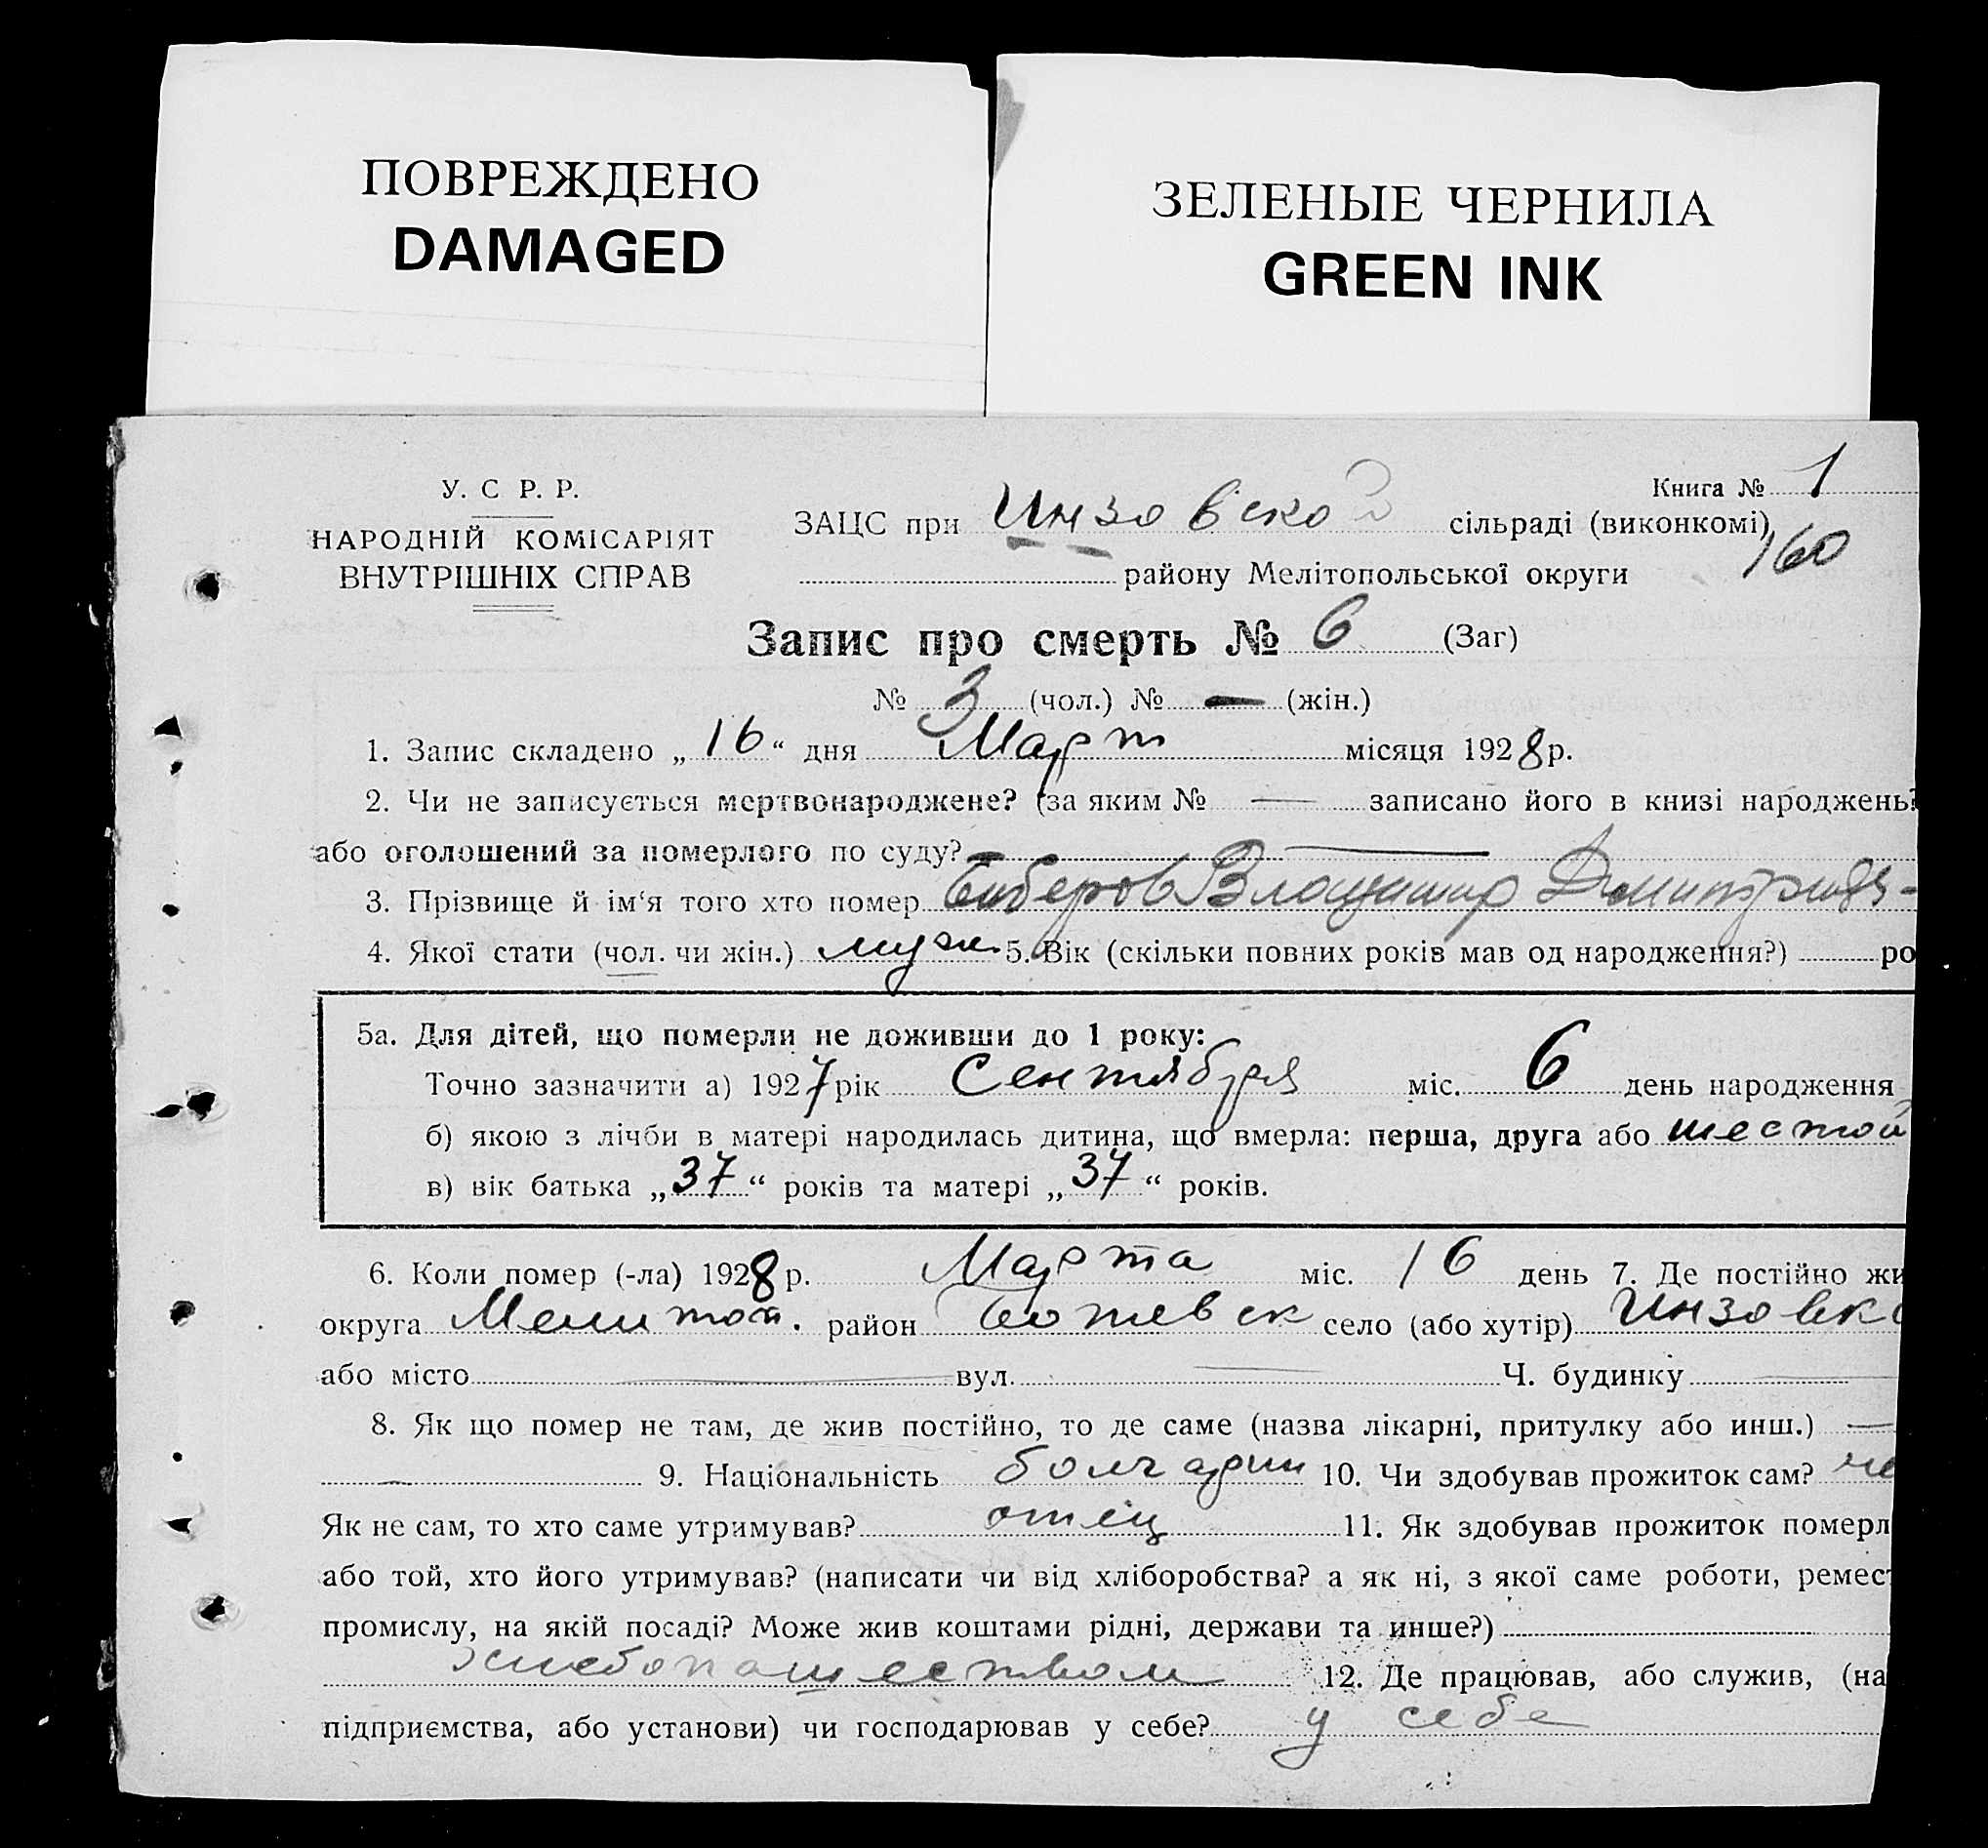 ПОВРЕЖДЕНО
DAMAGED
ЗЕЛЕНЫЕ ЧЕРНИЛА
GREEN INK
У. С Р. Р.
НАРОДНІЙ КОМІСАРІЯТ
ВНУТРІШНІХ СПРАВ
Книга № 1
160
ЗАЦС при Инзовской сільраді (виконкомі)
району Мелітопольської округи
Запис про смерть № 6 (Заг)
№ 3 (чол.) № — (жін.)
1. Запис складено „16“ дня Март місяця 1928 р.
2. Чи не записується мертвонароджене? (за яким № — записано його в книзі народжень?
або оголошений за померлого по суду? —
3. Прізвище й ім‘я того хто помер Владимир
4. Якої стати (чол. чи жін.) муж. 5. Вік (скільки повних років мав од народження?) ро
5а. Для дітей, що померли не доживши до 1 року:
Точно зазначити а) 1927 рік Сентября міс. 6 день народження
б) якою з лічби в матері народилась дитина, що вмерла: перша, друга або шестой
в) вік батька „37“ років та матері „37“ років.
6. Коли помер (-ла) 1928 р. Марта міс. 16 день 7. Де постійно жи
округа Мелитоп. район Ботевск село (або хутір) Инзовка
або місто — вул. — Ч. будинку —
8. Як що помер не там, де жив постійно, то де саме (назва лікарні, притулку або инш.) —
— 9. Національність болгарин 10. Чи здобував прожиток сам? не
Як не сам, то хто саме утримував? отец 11. Як здобував прожиток померл
або той, хто його утримував? (написати чи від хліборобства? а як ні, з якої саме роботи, ремес
промислу, на якій посаді? Може жив коштами рідні, держави та инше?)
Хлебопашеством 12. Де працював, або служив, (на
підприємства, або установи) чи господарював у себе? у себе